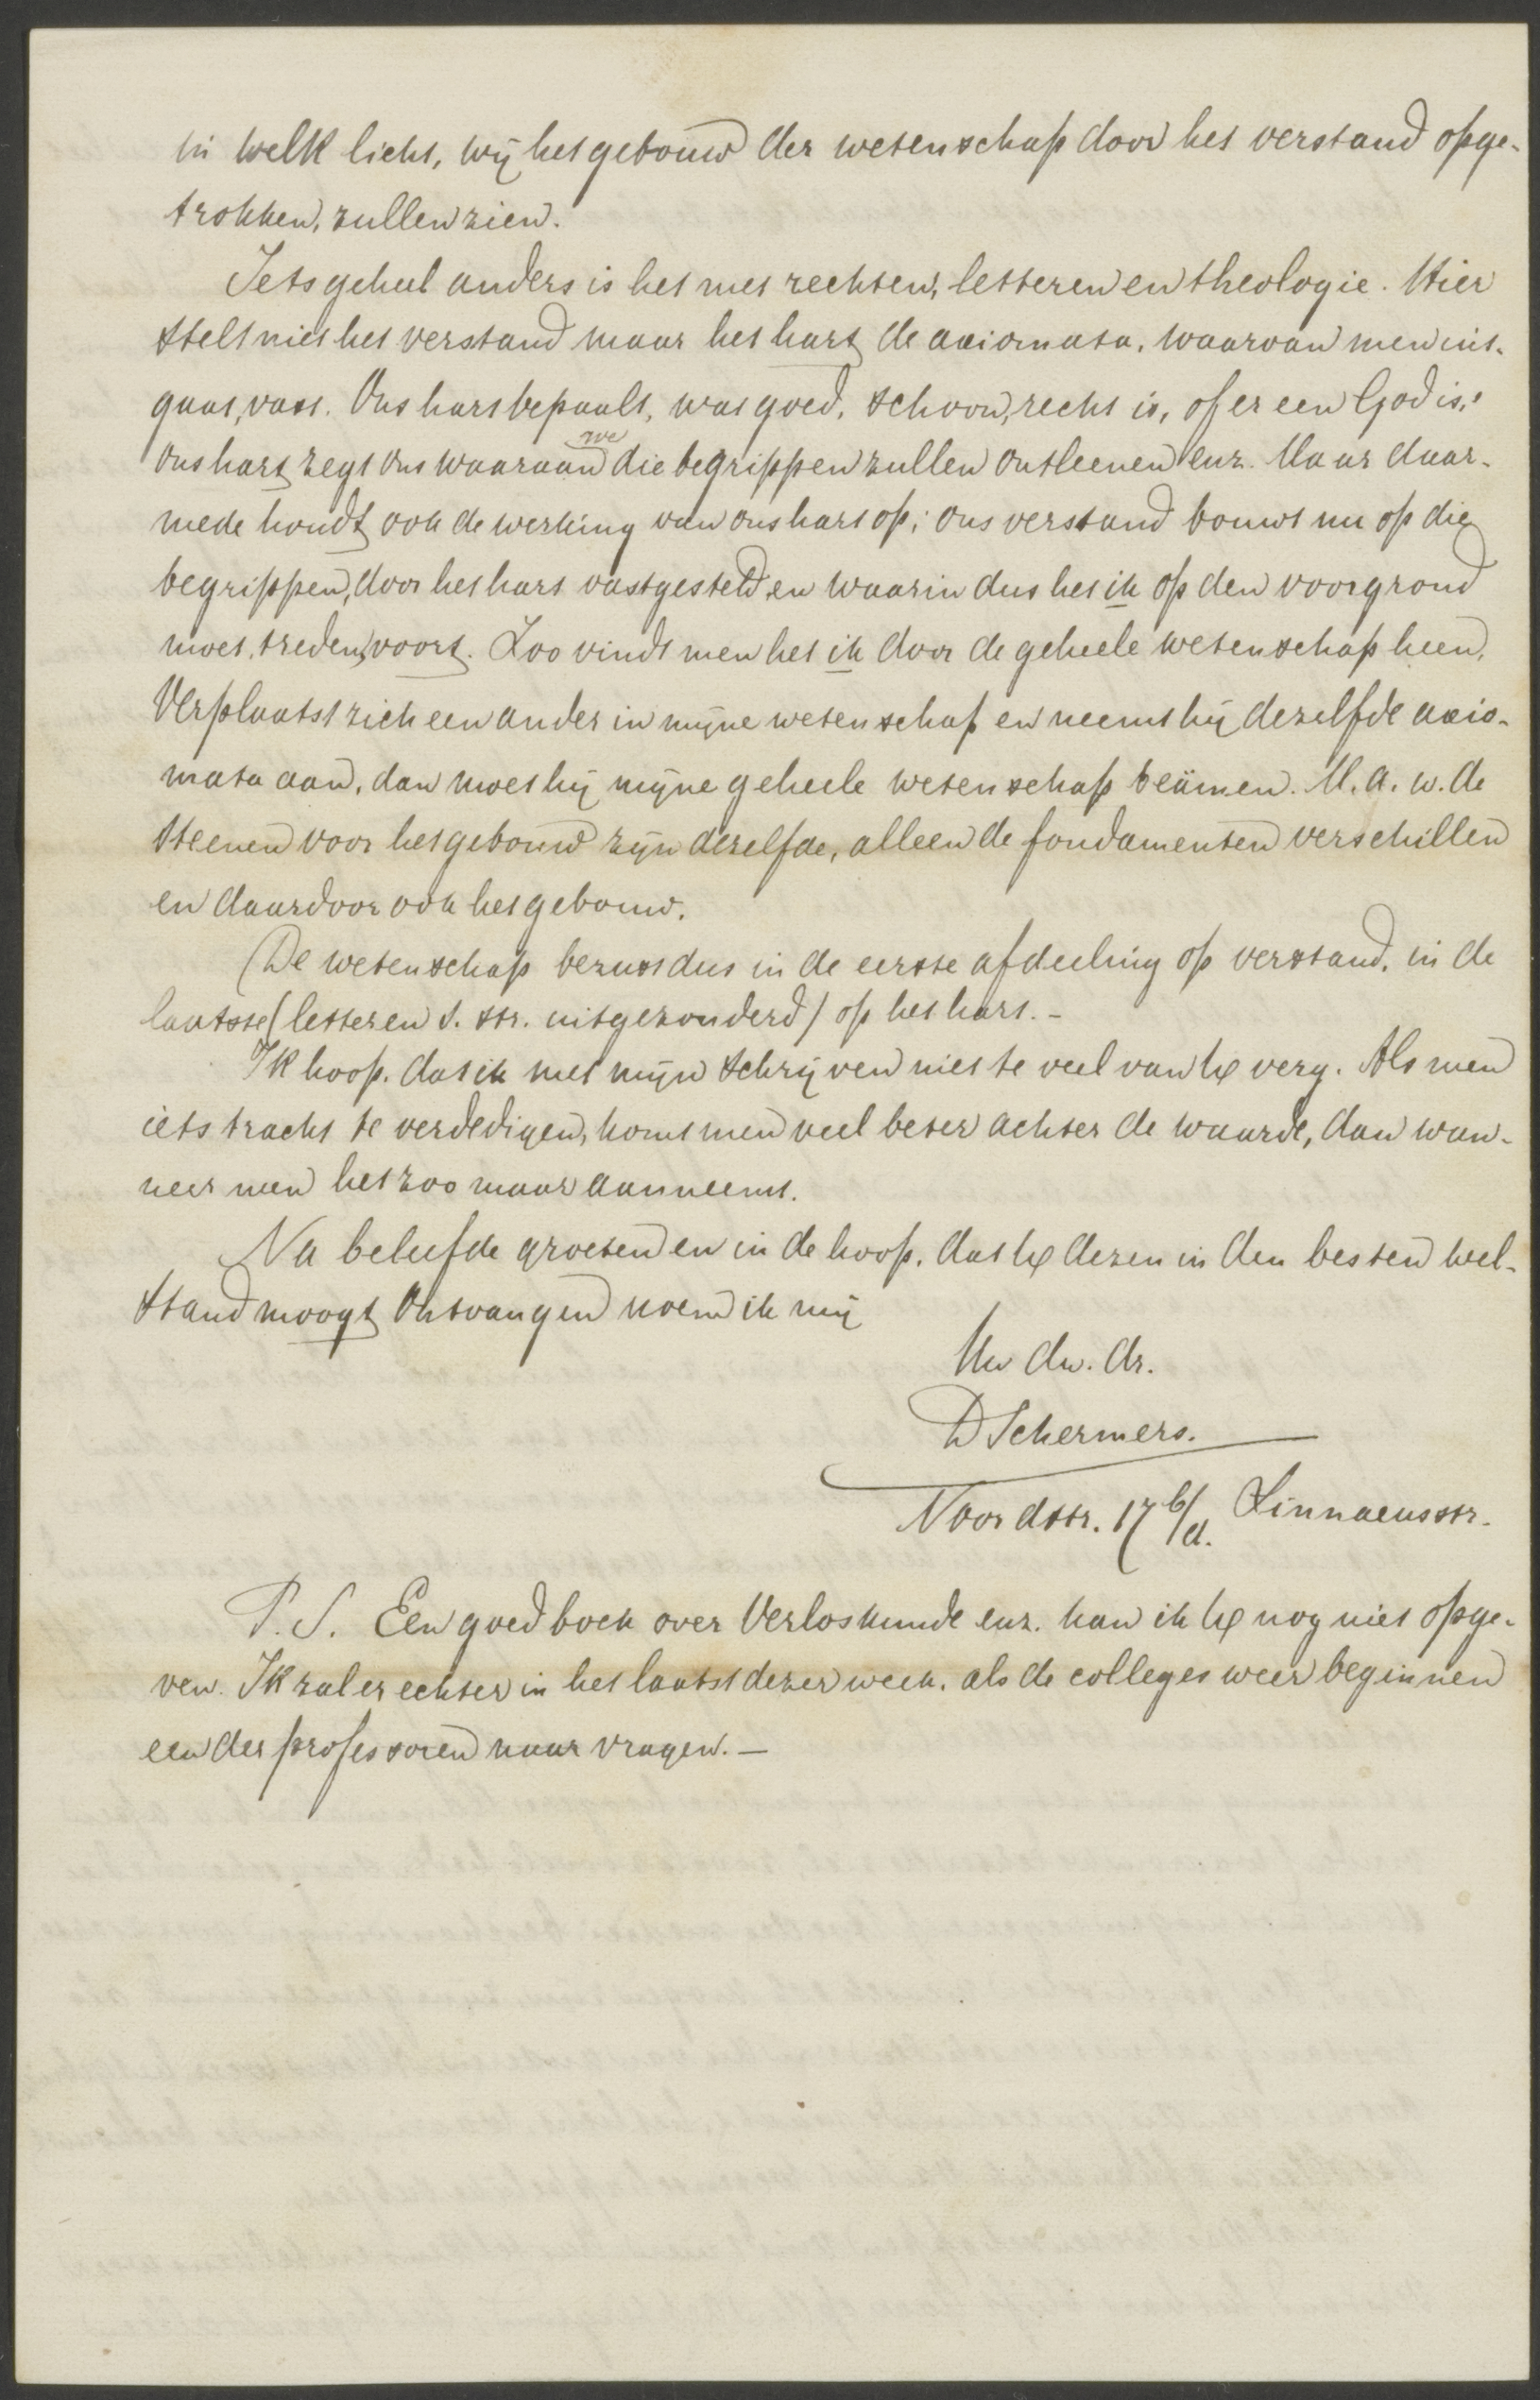 in welk licht, wij het gebouw der wetenschap door het verstand opge-
trokken, zullen zien.
Iets geheel anders is het met rechten, letteren en theologie. Hier
stelt niet het verstand maar het hart de axiomata, waarvan men uit-
gaat, vast. Ons hart bepaalt, wat goed, schoon, recht is, of er een God is,
ons hart zegt ons waaraan we die begrippen zullen ontleenen enz. Maar daar-
mede houdt ook de werking van ons hart op; ons verstand bouwt nu op die
begrippen, door het hart vastgesteld en waarin dus het ik op den voorgrond
moet treden, voort. Zoo vindt men het ik door de geheele wetenschap heen.
Verplaatst zich een ander in mijne wetenschap en neemt hij dezelfde axio-
mata aan, dan moet hij mijne geheele wetenschap beämen. M. a. w. de
steenen voor het gebouw zijn dezelfde, alleen de fondamenten verschillen
en daardoor ook het gebouw.
De wetenschap berust dus in de eerste afdeeling op verstand, in de
laatste (letteren s. str. uitgezonderd) op het hart. -
Ik hoop, dat ik met mijn schrijven niet te veel van U verg. Als men
iets tracht te verdedigen, komt men veel beter achter de waarde, dan wan-
neer men het zoo maar aanneemt.
Na beleefde groeten en in de hoop, dat U dezen in den besten wel-
stand moogt ontvangen noem ik mij
Uw dw. dr.
D Schermers.
Noordstr. 17 b/d. Linnaeusstr.
P. S. Een goed boek over Verloskunde enz. kan ik U nog niet opge-
ven. Ik zal er echter in het laatst dezer week, als de colleges weer beginnen
een der professoren naar vragen. -